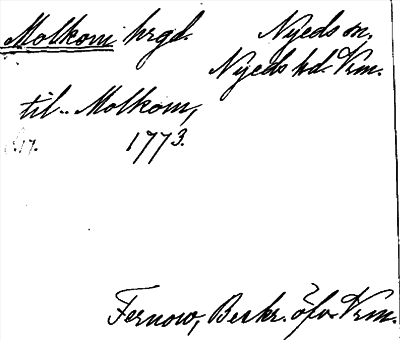 Molkom hrgd. Nyeds sn.
Nyeds hd. Vrm.
til.. Molkom,
s. 17. 1773.
Fernow, Beskr. öfv. Vrm.